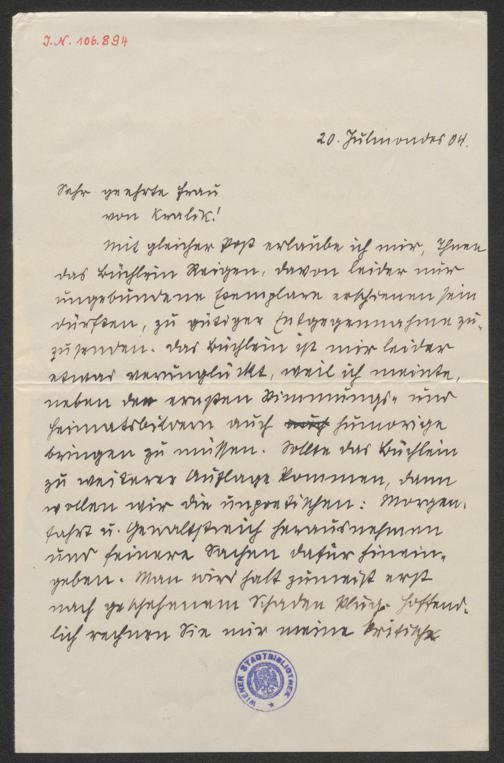 J.N. 106.894
20. Julmondes 04.
Sehr geehrte Frau
von Kralik!
Mit gleicher Post erlaube ich mir, Ihnen
das Büchlein Reigen, davon leider nur
ungebundene Exemplare erschienen sein
dürften, zu gütiger Entgegennahme zu-
zusenden. Das Büchlein ist mir leider
etwas verunglückt, weil ich meinte,
neben den ernsten Stimmungs- und
Heimatsbildern auch humorige
bringen zu müssen. Sollte das Büchlein
zu weiterer Auflage kommen, dann
wollen wir die unpoetischen: Morgen-
fahrt u. Gewaltstreich herausnehmen
und feinere Sachen dafür hinein-
geben. Man wird halt zumeist erst
nach geschehenem Schaden klug. Hoffend-
lich rechnen Sie mir meine kritische
WIENER STADTBIBLIOTHEK